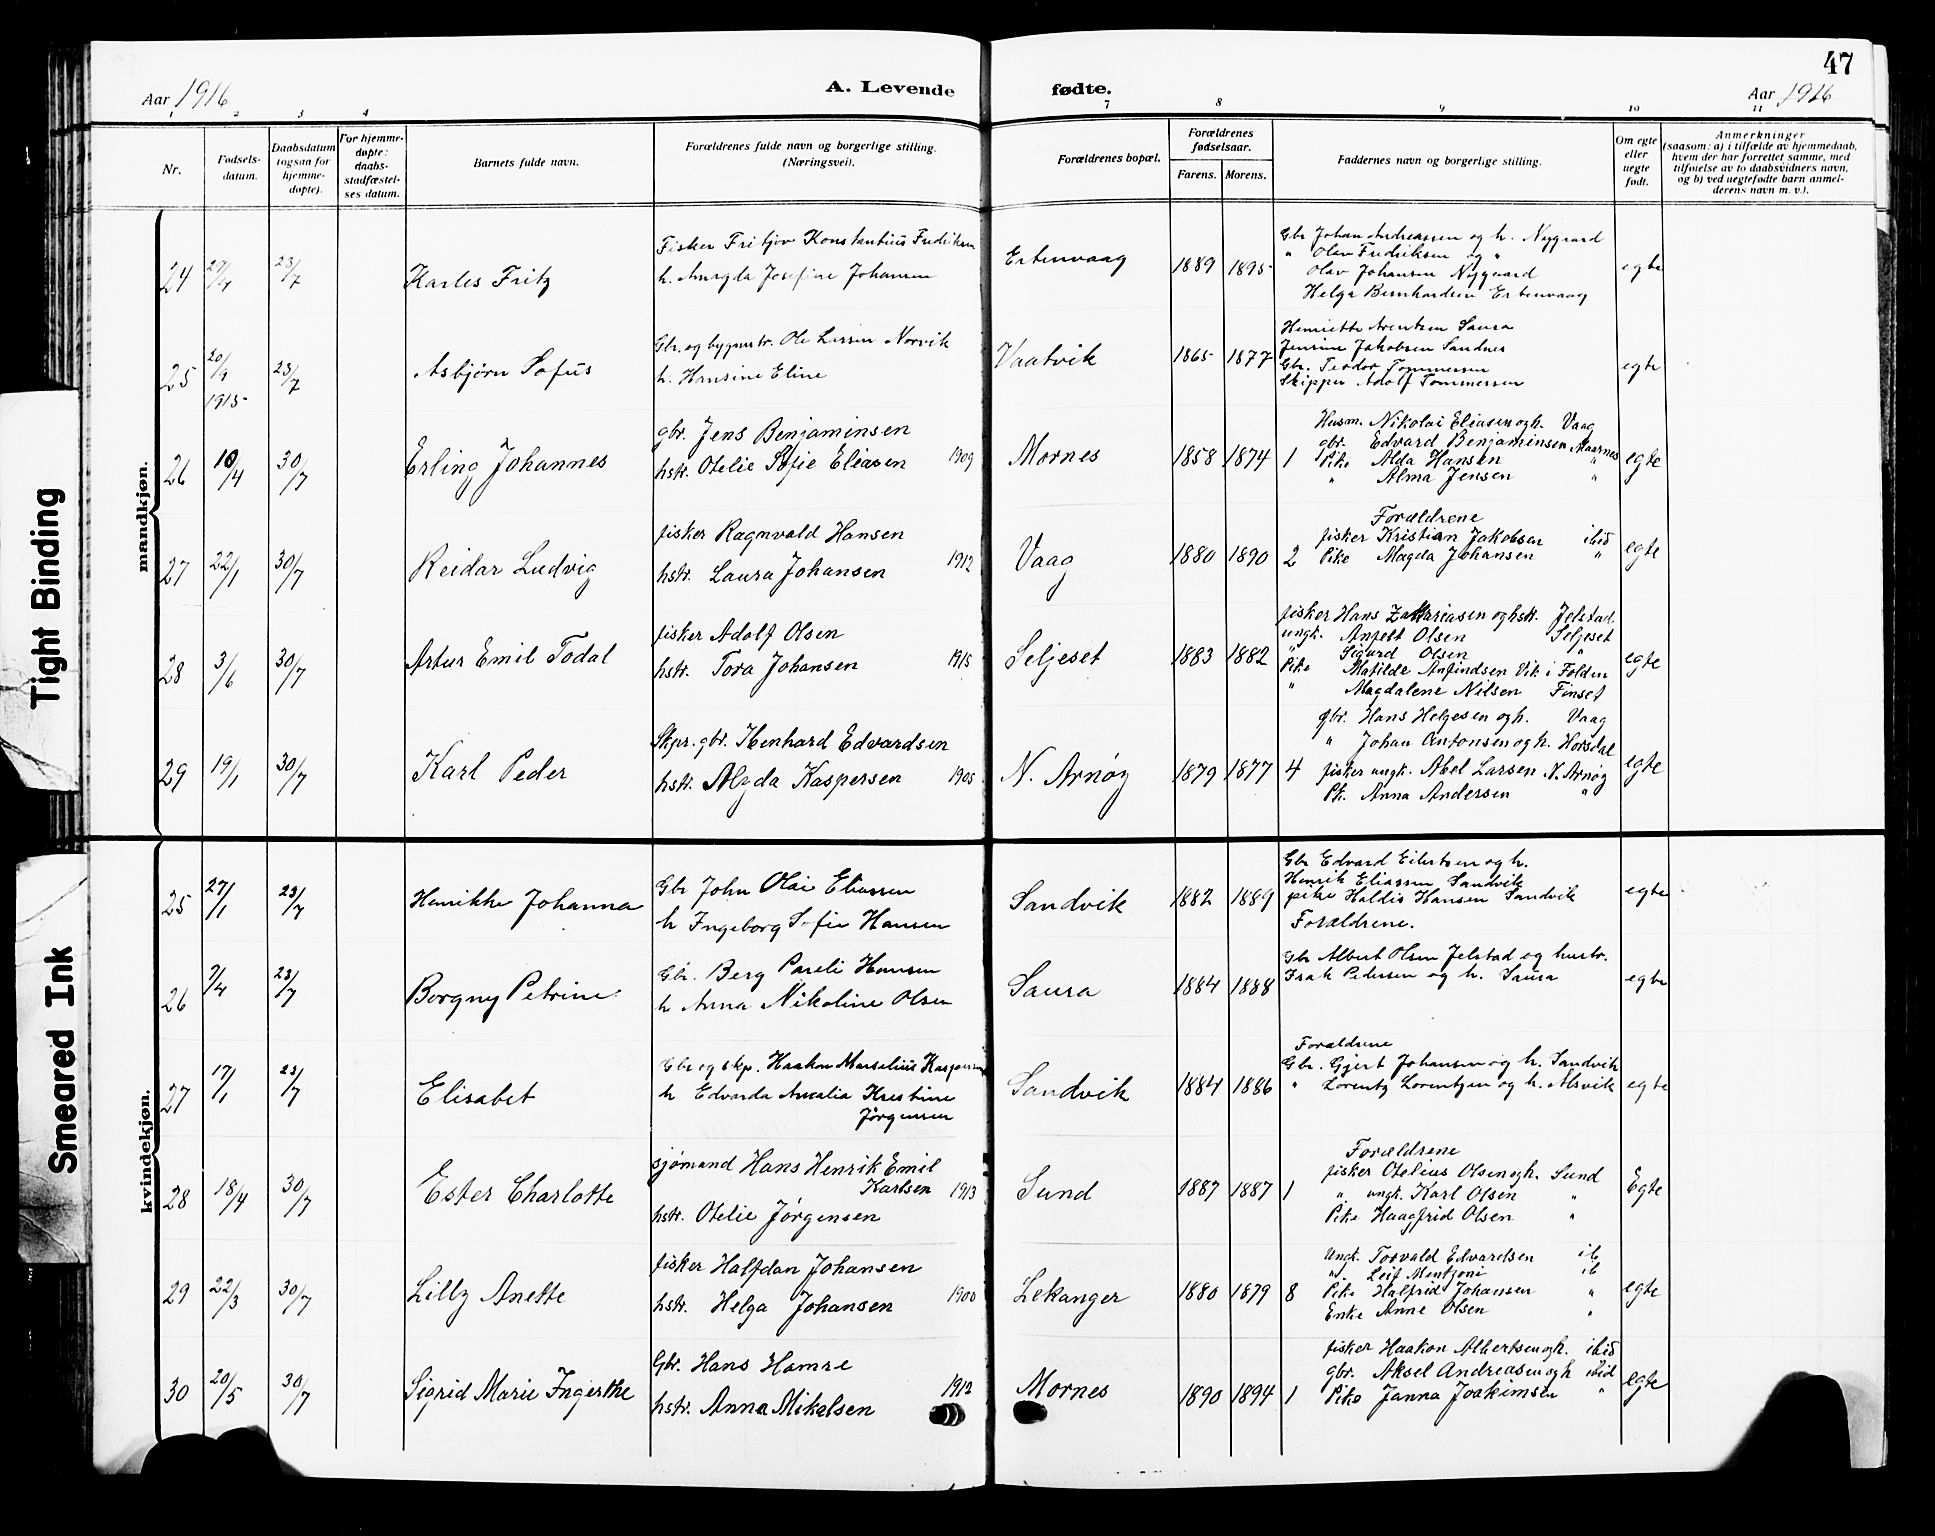 47
Aar 1916
A. Levende
fødte.
Aar 1916
1 2 3 4 7 8 9 10 11
Nr.
Fødsels-
datum.
Daabsdatum
(ogsaa for
hjemme-
døpte).
For hjemme-
døpte:
daabs-
stadfæstel-
ses datum.
Barnets fulde navn.
Forældrenes fulde navn og borgerlige stilling.
(Næringsvei).
Forældrenes bopæl.
Forældrenes
fødselsaar.
Farens. Morens.
Faddernes navn og borgerlige stilling.
Om egte
eller
uegte
født.
Anmerkninger
(saasom: a) i tilfælde av hjemmedaab,
hvem der har forrettet samme, med
tilføielse av to daabsvidners navn,
og b) ved uegtefødte barn anmel-
derens navn m. v.).
mandkjøn.
24 27/4 23/7 Karles Fritz
Fisker Fritjov Konstantius Fredriksen
h. Josefine Johansen
Ertenvaag 1889 1895
Gbr Johan Andreassen og h. Nygaard
" Olav Fredriksen og "
Olav Johansen Nygaard
Helga Bernhardsen Ertenvaag
egte
25 20/9 1915 23/7 Asbjørn Sofus
Gbr. og bygmstr. Ole Larsen Norvik
h. Hansine Eline
Vaatvik 1865 1877
Henriette Arentsen Saura
Jensine Jakobsen Sandnes
Gbr. Teodor Tommessen
Skipper Adolf Tommessen
egte
26 10/4 30/7 Erling Johannes
gbr. Jens Benjaminsen
hstr. Otelie Sofie Eliasen 1909
Mornes 1858 1874 1
Husm. Nikolai Eliasen og h. Vaag
gbr. Edvard Benjaminsen, Maarnes
Pike Alda Hansen "
" Alma Jensen "
egte
27 22/1 30/7 Reidar Ludvig
fisker Ragnvald Hansen
hstr. Laura Johansen 1912
Vaag 1880 1890 2
Forældrene
fisker Kristian Jakobsen ibid
Pike Magda Johansen "
egte
28 3/6 30/7 Artur Emil Todal
fisker Adolf Olsen
hstr. Tora Johansen 1915
Seljeset 1883 1882
fisker Hans Zakariasen og hstr. Jelstad
ungk. Anfelt Olsen Seljeset
" Sigurd Olsen "
Pike Matilde Anfindsen Vik i Folden
" Magdalene Nilsen Finset
egte
29 19/1 30/7 Karl Peder
Skpr. gbr. Edvardsen
hstr. Alyda Kaspersen 1905
N. Arnøy 1879 1877 4
gbr. Hans Helgesen og h. Vaag
" Johan Antonsen og h. Horsdal
fisker ungk. Abel Larsen N. Arnøy
Pk. Anna Andersen "
egte
kvindekjøn.
25 27/1 23/7 Henrikke Johanna
Gbr John Olai Eliassen
h Ingeborg Sofie Hansen
Sandvik 1882 1889
Gbr Edvard Eilertsen og h.
Henrik Eliassen Sandvik
pike Haldis Hansen Sandvik
Forældrene.
egte
26 7/4 23/7 Borgny Petrine
Gbr. Berg Pareli Hansen
h Anna Nikoline Olsen
Saura 1884 1888
Gbr Albert Olsen Jelstad og hustr.
Isak Pedersen og h. Saura
egte
27 17/1 23/7 Elisabet
Gbr og skp. Haakon Marselius Kaspersen
h Edvarda Amalia Kristine
Jørgensen
Sandvik 1884 1886
Forældrene
Gbr. Gjert Johansen og h. Sandvik
" Lorentz Lorentzen og h. Alsvik
egte
28 18/4 30/7 Ester Charlotte
sjømand Hans Henrik Emil
Karlsen 1913
hstr. Otelie Jørgensen
Sund 1887 1887 1
Forældrene
fisker Otelius Olsen og h. Sund
" ungk. Karl Olsen "
Pike Haagfrid Olsen "
Egte
29 22/3 30/7 Lilly Anette
fisker Halfdan Johansen
hstr. Helga Johansen 1900
Lekanger 1880 1879 8
Ungk. Torvald Edvardsen ib
" Leif Mentzoni ib
Pike Halfrid Johansen "
Enke Anne Olsen "
egte
30 20/5 30/7 Sigrid Marie Ingerthe
Gbr. Hans Hamre
hstr. Anna Mikalsen 1912
Mornes 1890 1894 1
fisker Haakon Albertsen og h. ibid
gbr. Aksel Andreasen og h ibid
Pike Janna Joakimsen "
egte
Tight Binding
Smeared Ink